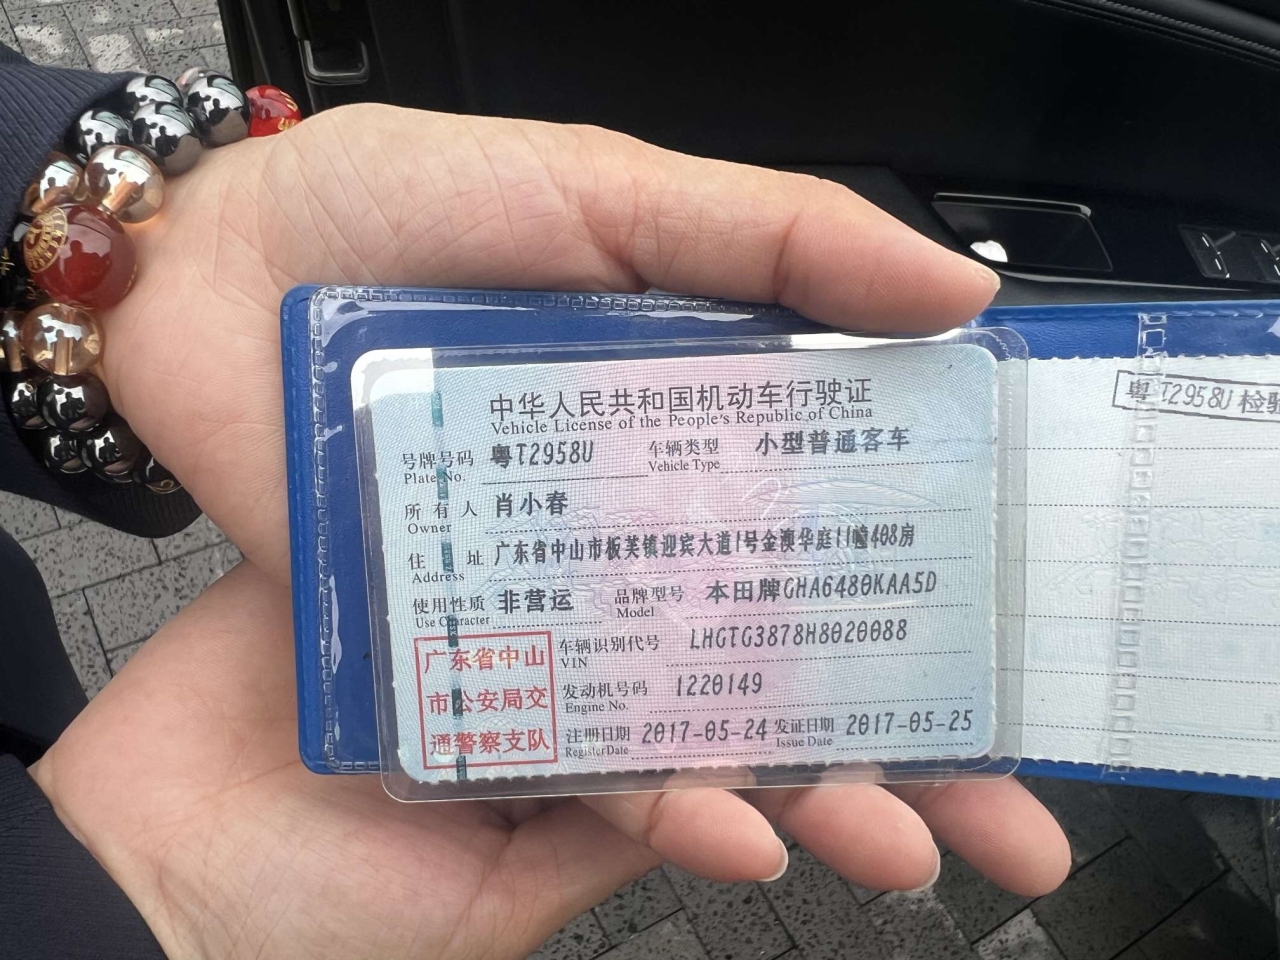 中华人民共和国机动车行驶证
Vehicle License of the People's Republic of China
号牌号码 粤T2958U 车辆类型 小型普通客车
Plate No. Vehicle Type
所有人 肖小春
Owner
住址 广东省中山市板芙镇迎宾大道1号金澳华庭11幢408房
Address
使用性质 非营运 品牌型号 本田牌GHA6480KAA5D
Use Character Model
车辆识别代号 LHGTG3878H8020088
VIN
发动机号码 1220149
Engine No.
注册日期 2017-05-24 发证日期 2017-05-25
Register Date Issue Date
广东省中山
市公安局交
通警察支队
粤T2958U 检